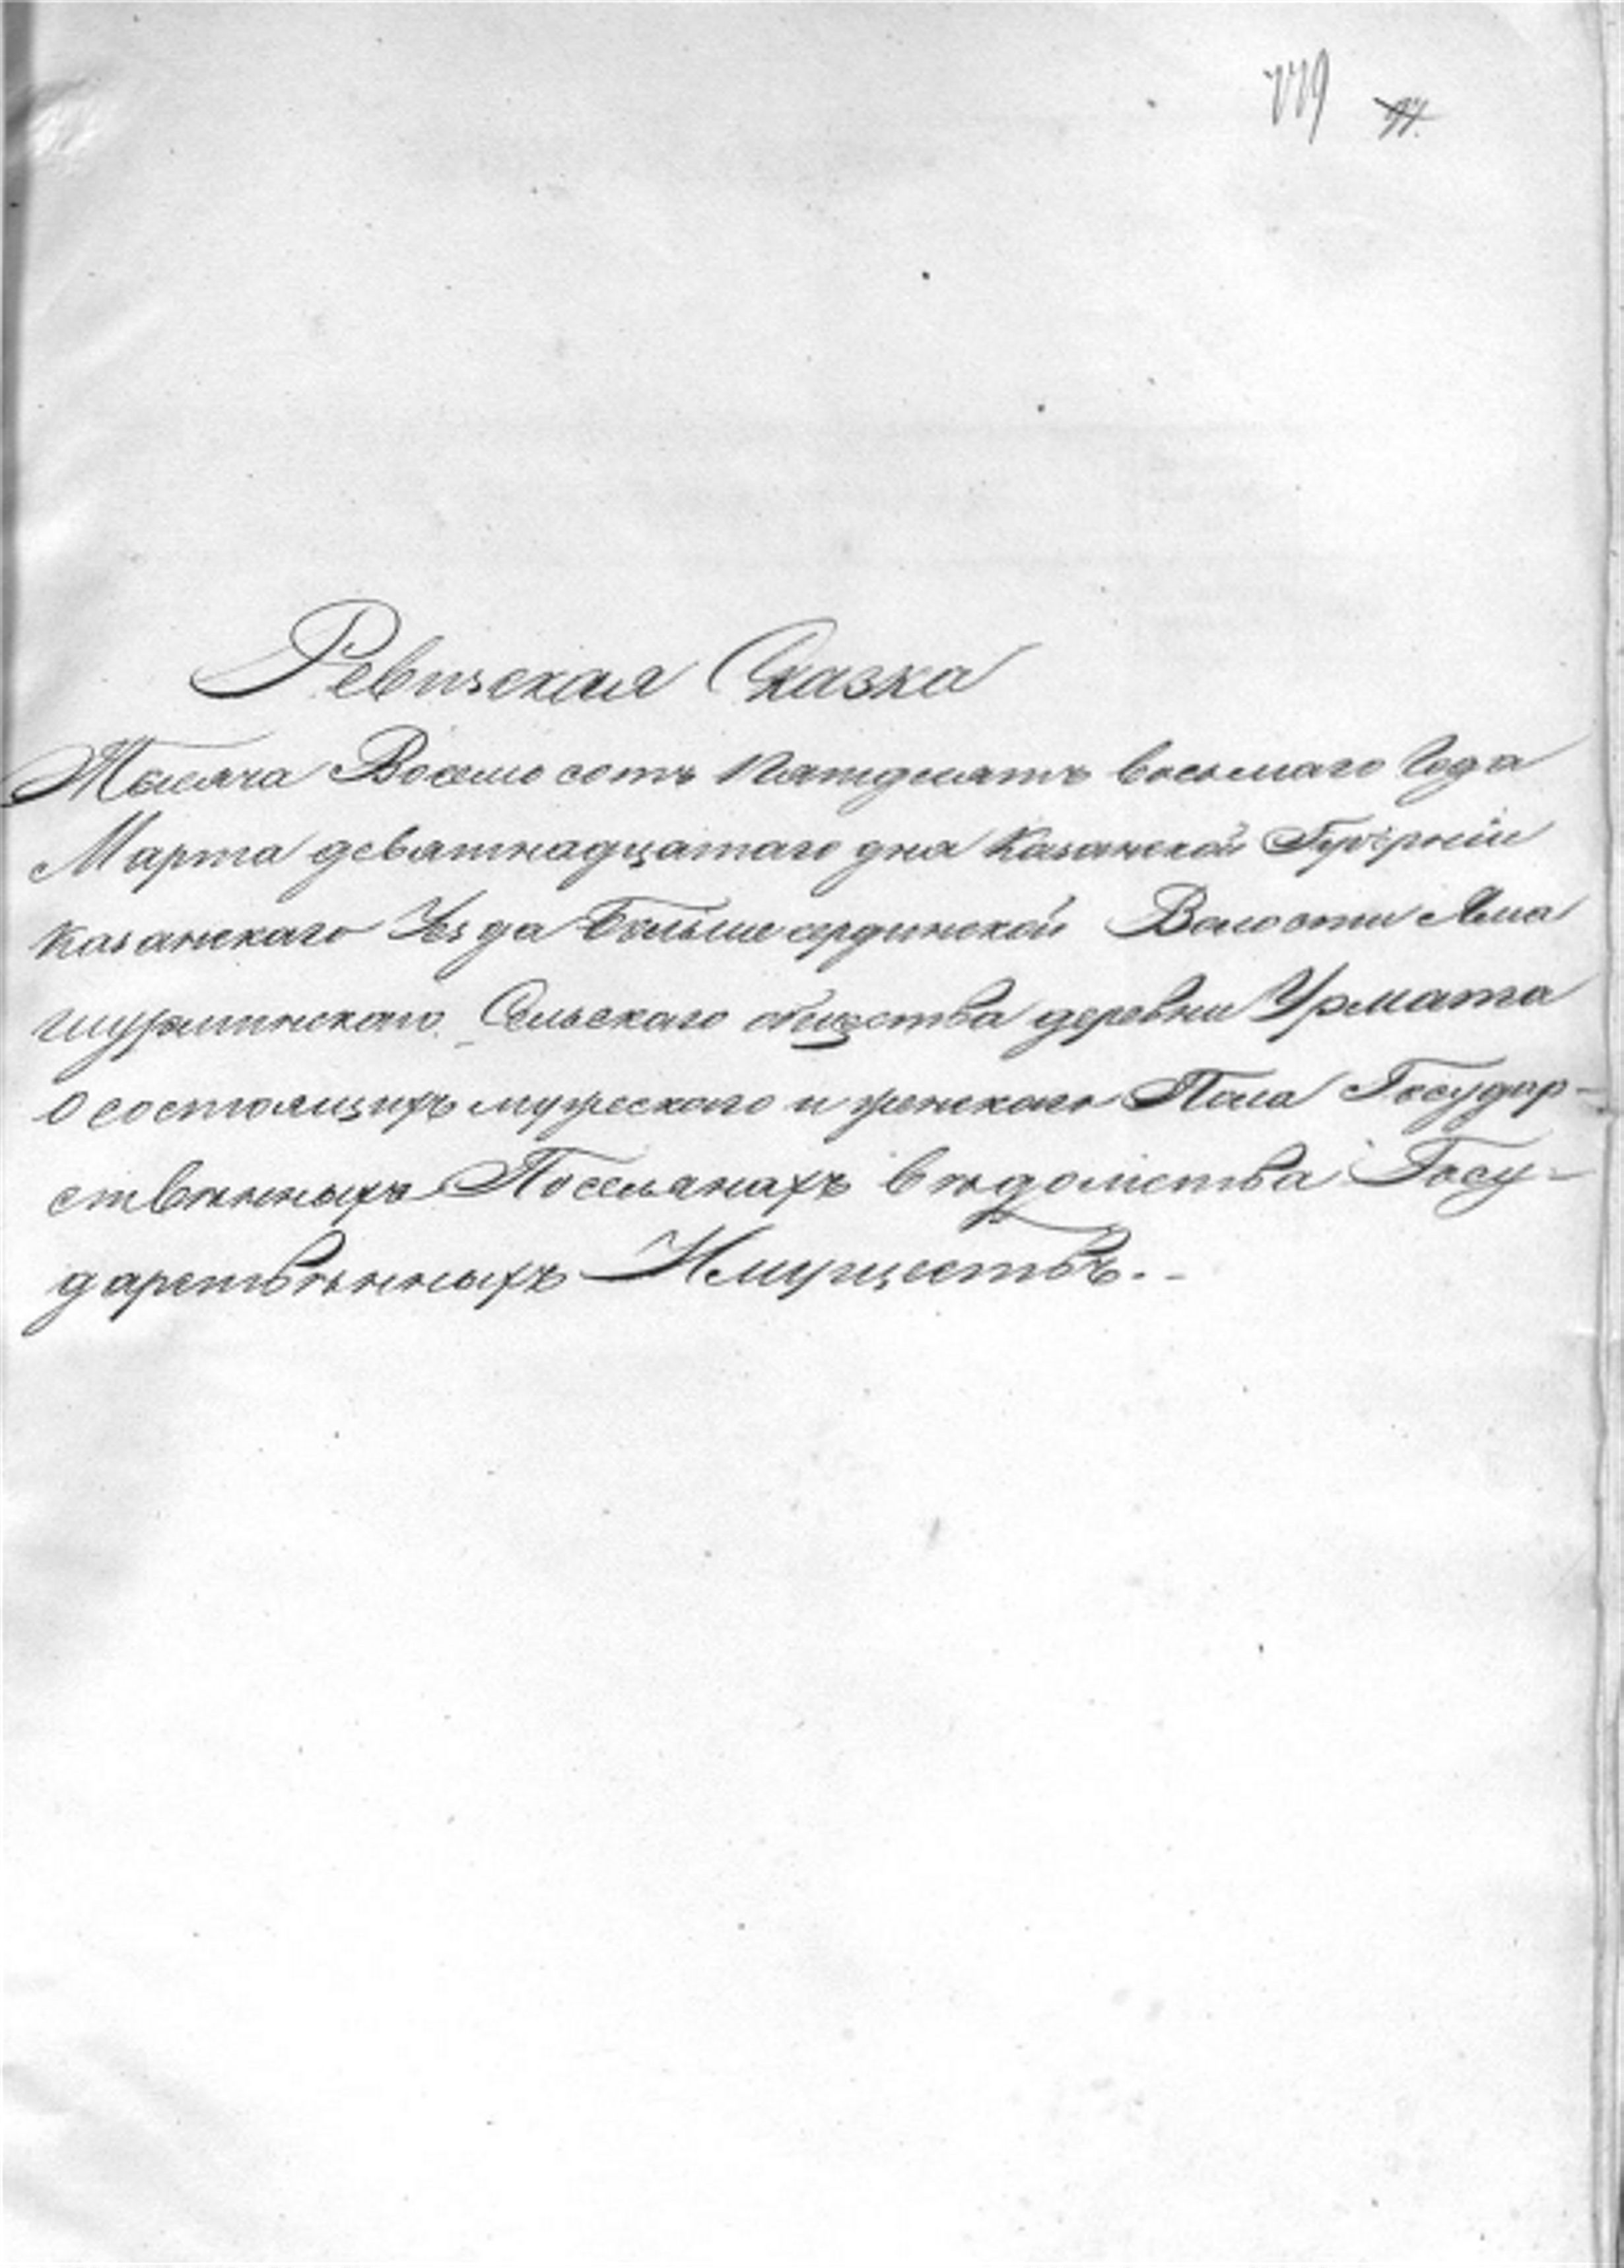 779
Ревизская Сказка
Тысяча Восемо сотъ Пятдесятъ восьмаго Года
Марта девятнадцатаго дня Казанской Губернiи
Казанскаго Уѣзда Больше сердинской Волости Яма
шурминскаго Сельскаго общества деревни Урмата
О состоящихъ мужескаго и женскаго Пола Государ-
ственныхъ Поселянахъ вѣдомства Госу-
дарственныхъ Имуществъ.